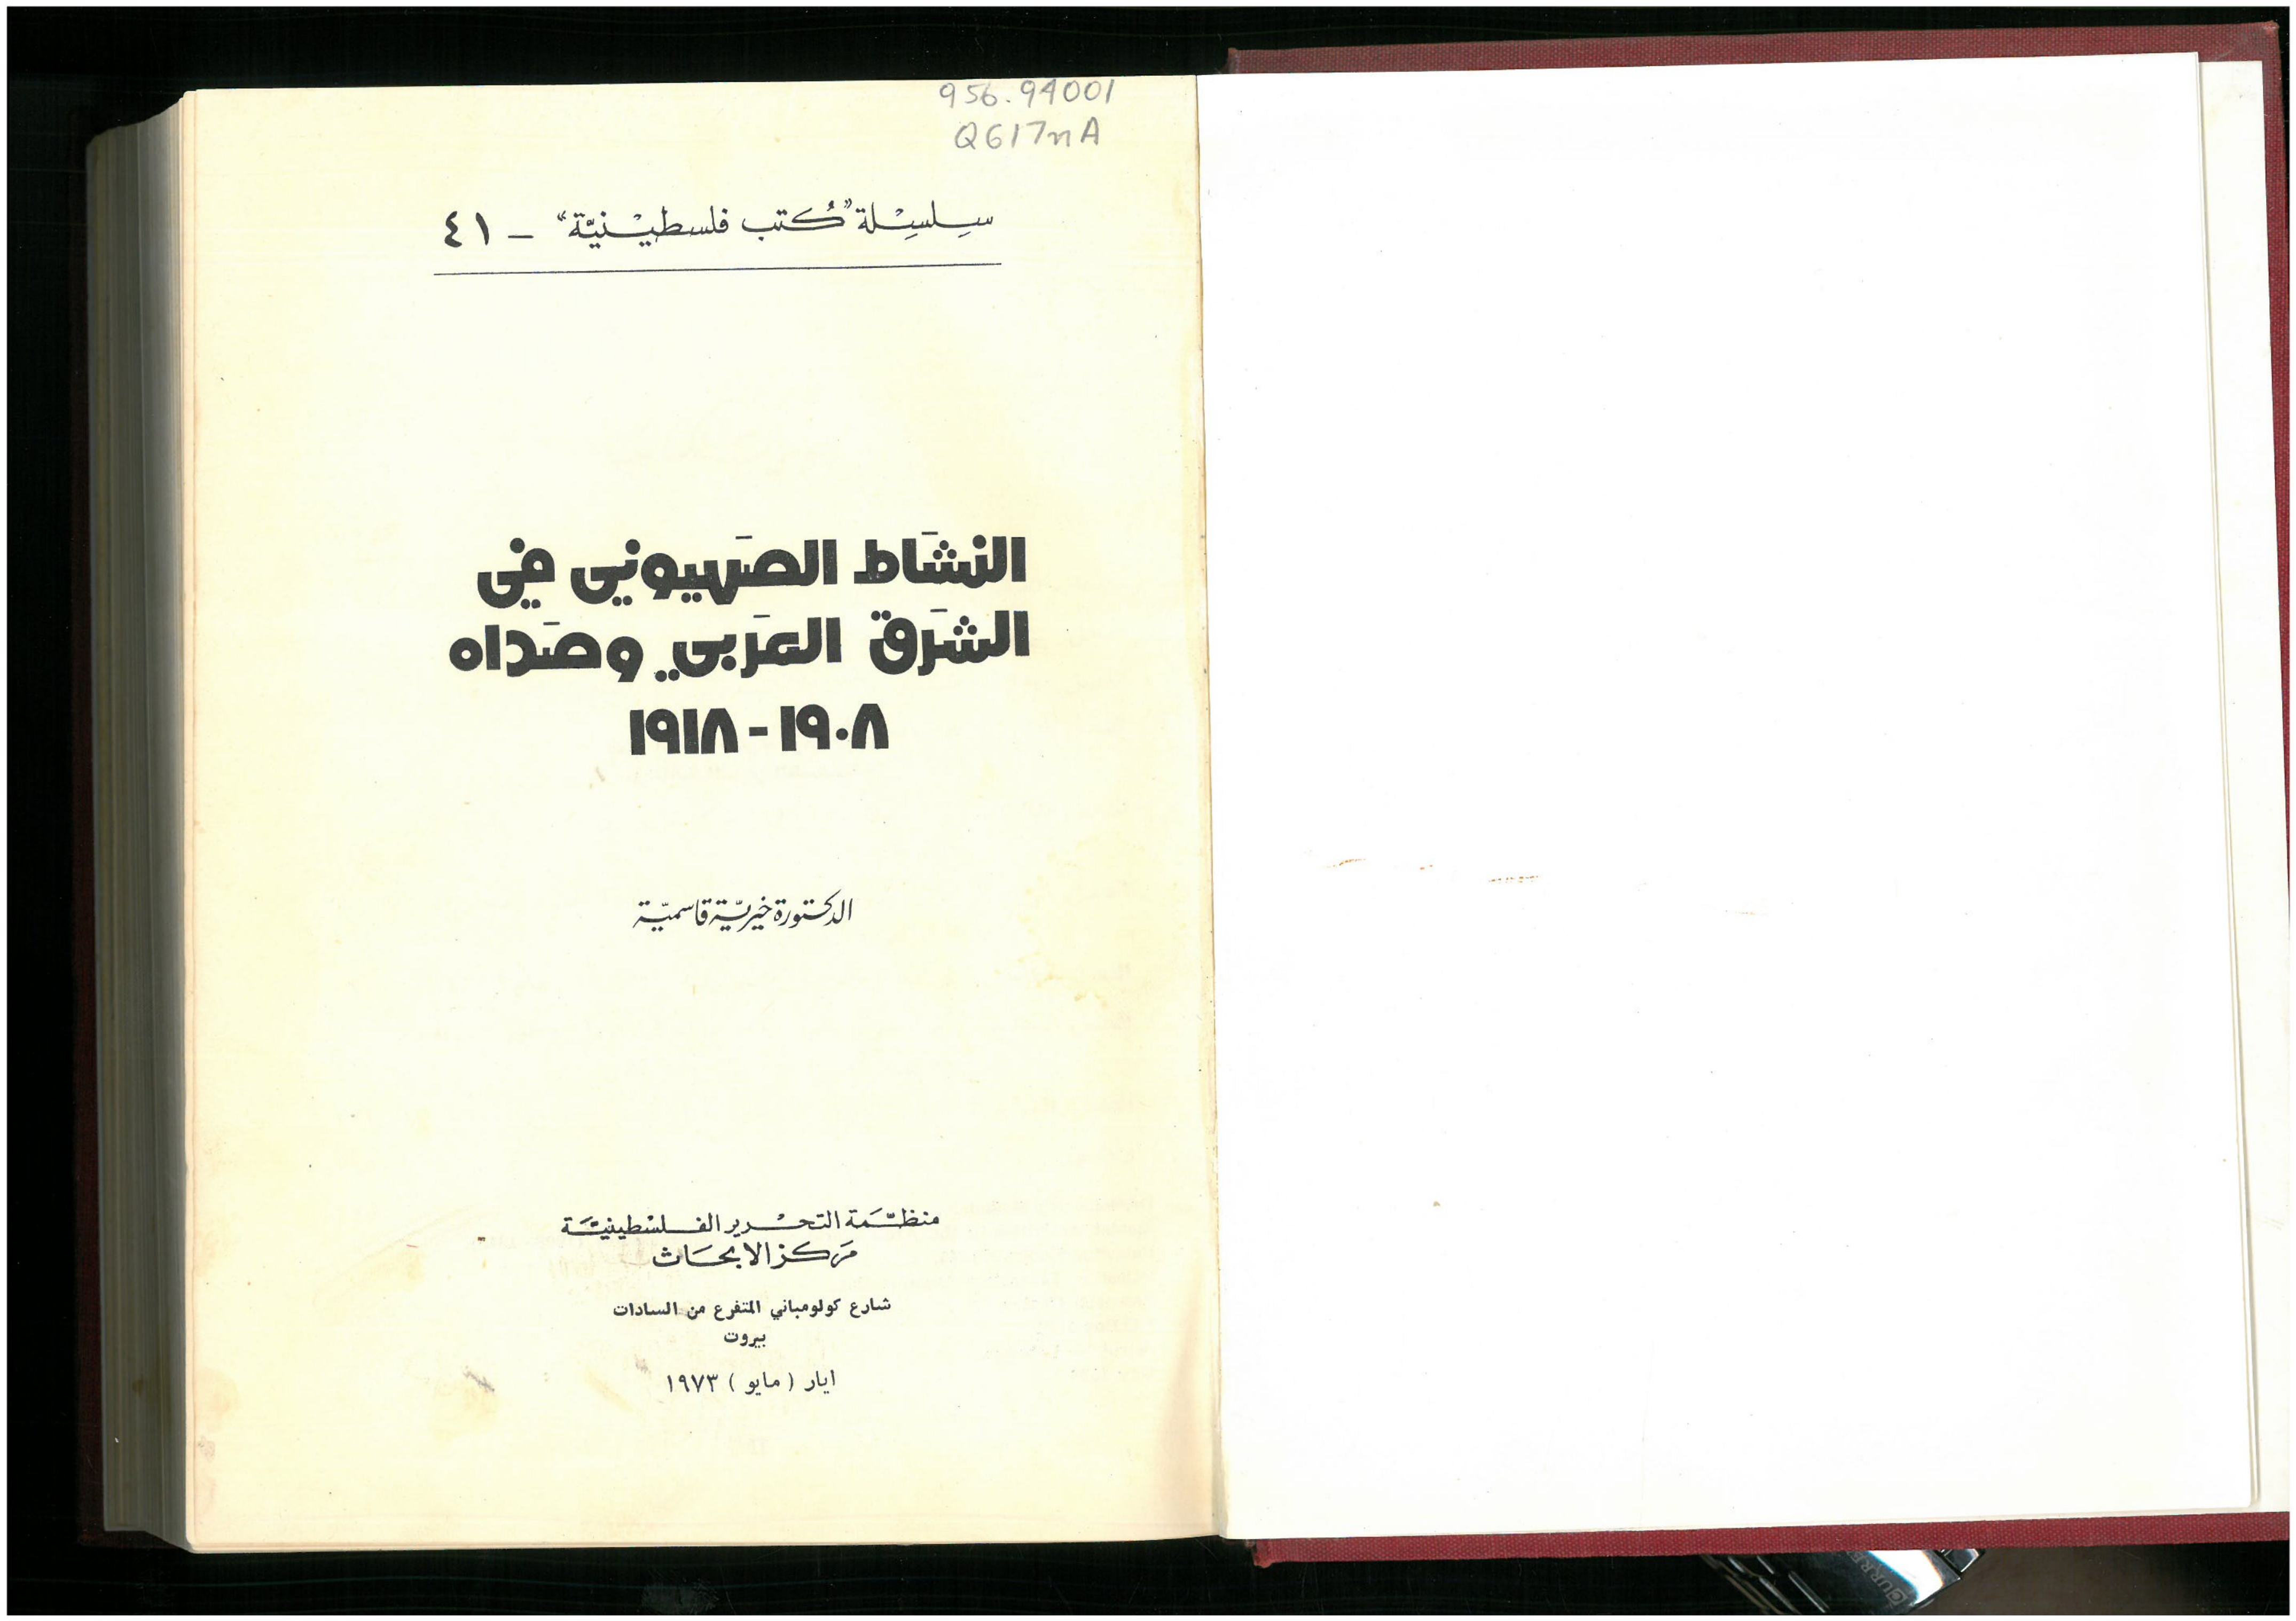 956.94001
Q617nA
سِلسِلة "كُتب فلسطيْنيَّة" - ٤١
النشَاط الصَهيوني في
الشَرق العَربي وصَداه
١٩٠٨ - ١٩١٨
الدكتورة خيريّة قاسميّة
منظّمَة التحْرير الفلسْطينيَّة
مَركز الابحَاث
شارع كولومباني المتفرع من السادات
بيروت
ايار ( مايو ) ١٩٧٣